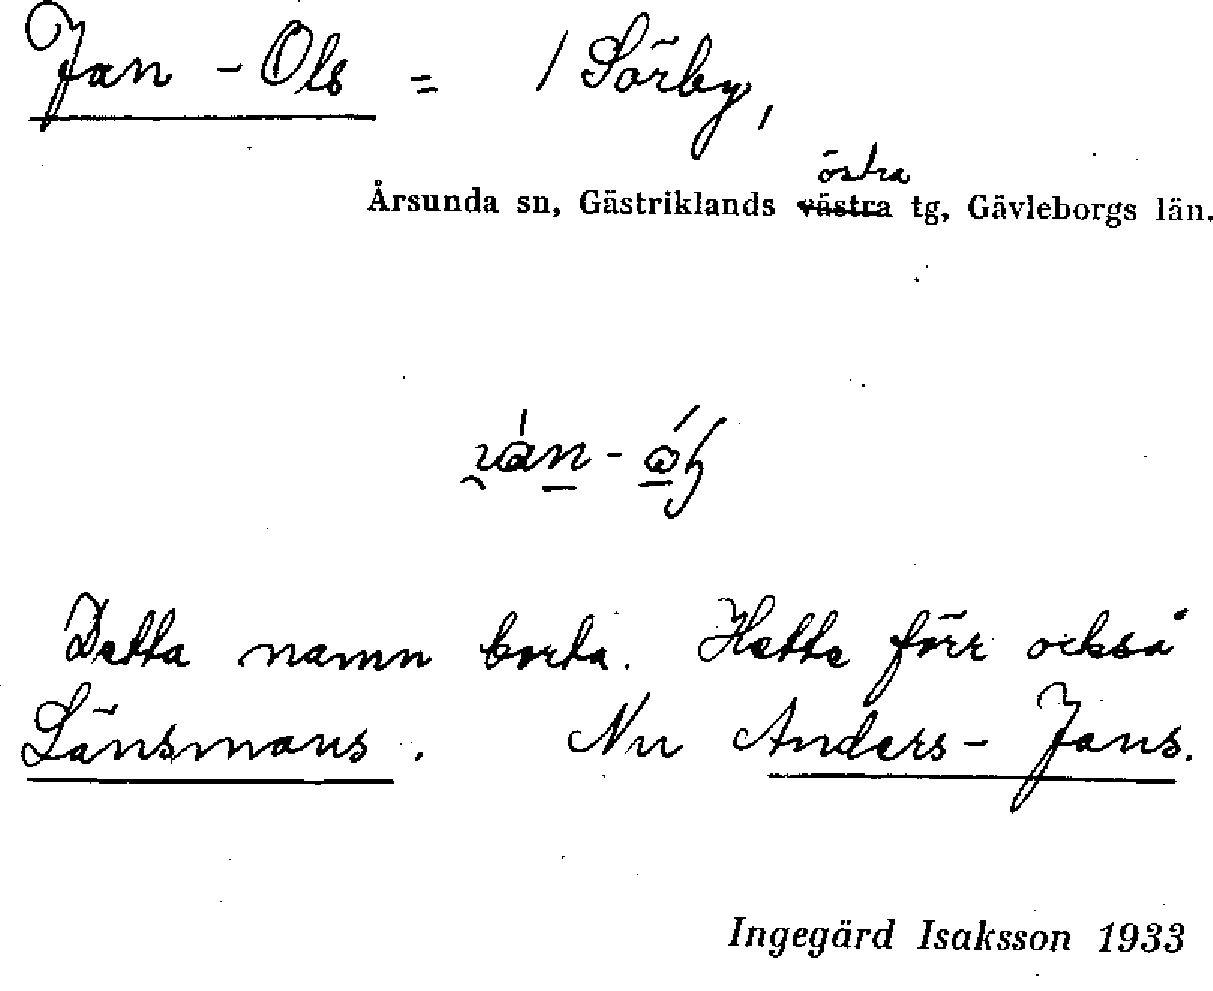 Jan - Ols = 1 Sörby,
östra
Årsunda sn, Gästriklands västra tg, Gävleborgs län.
Detta namn borta. Hette förr också
Länsmans. Nu Anders - Jans.
Ingegärd Isaksson 1933